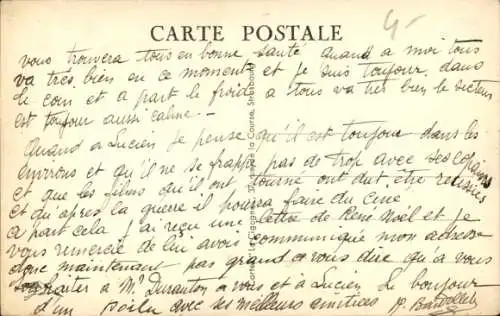 CARTE POSTALE
4-
vous trouvera tous en bonne santé quand a moi tous
va très bien en ce moment et je suis toujour dans
le coin et a part le froid a tous va très bien le secteur
est toujour aussi calme. -
Quand a Lucien je pense qu'il est toujour dans les
environs et qu'il ne se frappe pas de trop avec ses copains
et que les films qu'il ont tourné ont dut être reussies
et qu'après la guerre il pourra faire du Ciné
a part cela j'ai reçu une lettre de René Noël et je
vous remercie de lui avoir communiqué mon adresse
donc maintenant pas grand a vous dire qu a vous
souhaiter a Mr Duranton a vous et a Lucien le bonjour
d'un poilu avec ses meilleurs amities